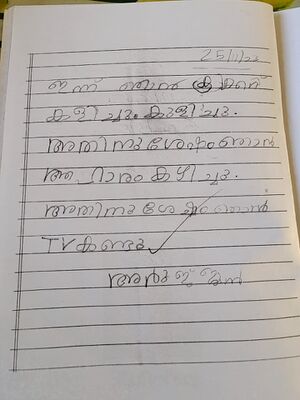 25/11/23
ഇന്ന് ഞാൻ ക്രിക്കറ്റ്
കളിച്ചു. കുളിച്ചു.
അതിനുശേഷം ഞാൻ
ആഹാരം കഴിച്ചു.
അതിനുശേഷം ഞാൻ
TV കണ്ടു